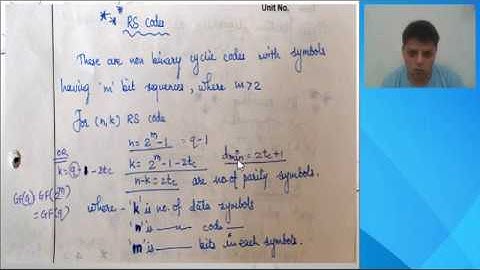 Unit No.
RS Codes
These are non binary cyclic codes with symbols
having 'm' bit sequences, where m>2
For (n,k) RS code
n = 2^m - 1 = q-1
OR k = 2^m - 1 - 2tc dmin = 2tc + 1
k = q - 1 - 2tc n-k = 2tc are no. of parity symbols.
GF(q) GF(2^m)
= GF(q)
where - 'k' is no. of data symbols
'n' is —"— code —
'm' is —— bits in each symbols.